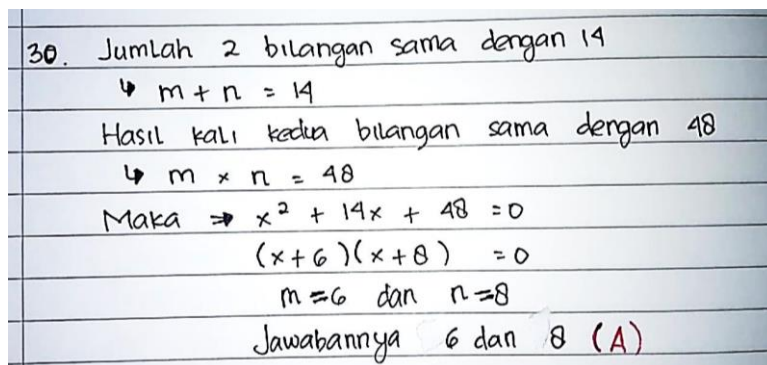 30. Jumlah 2 bilangan sama dengan 14
↳ m + n = 14
Hasil kali kedua bilangan sama dengan 48
↳ m × n = 48
Maka ⇒ x² + 14x + 48 = 0
(x+6)(x+8) = 0
m = 6 dan n = 8
Jawabannya 6 dan 8 (A)